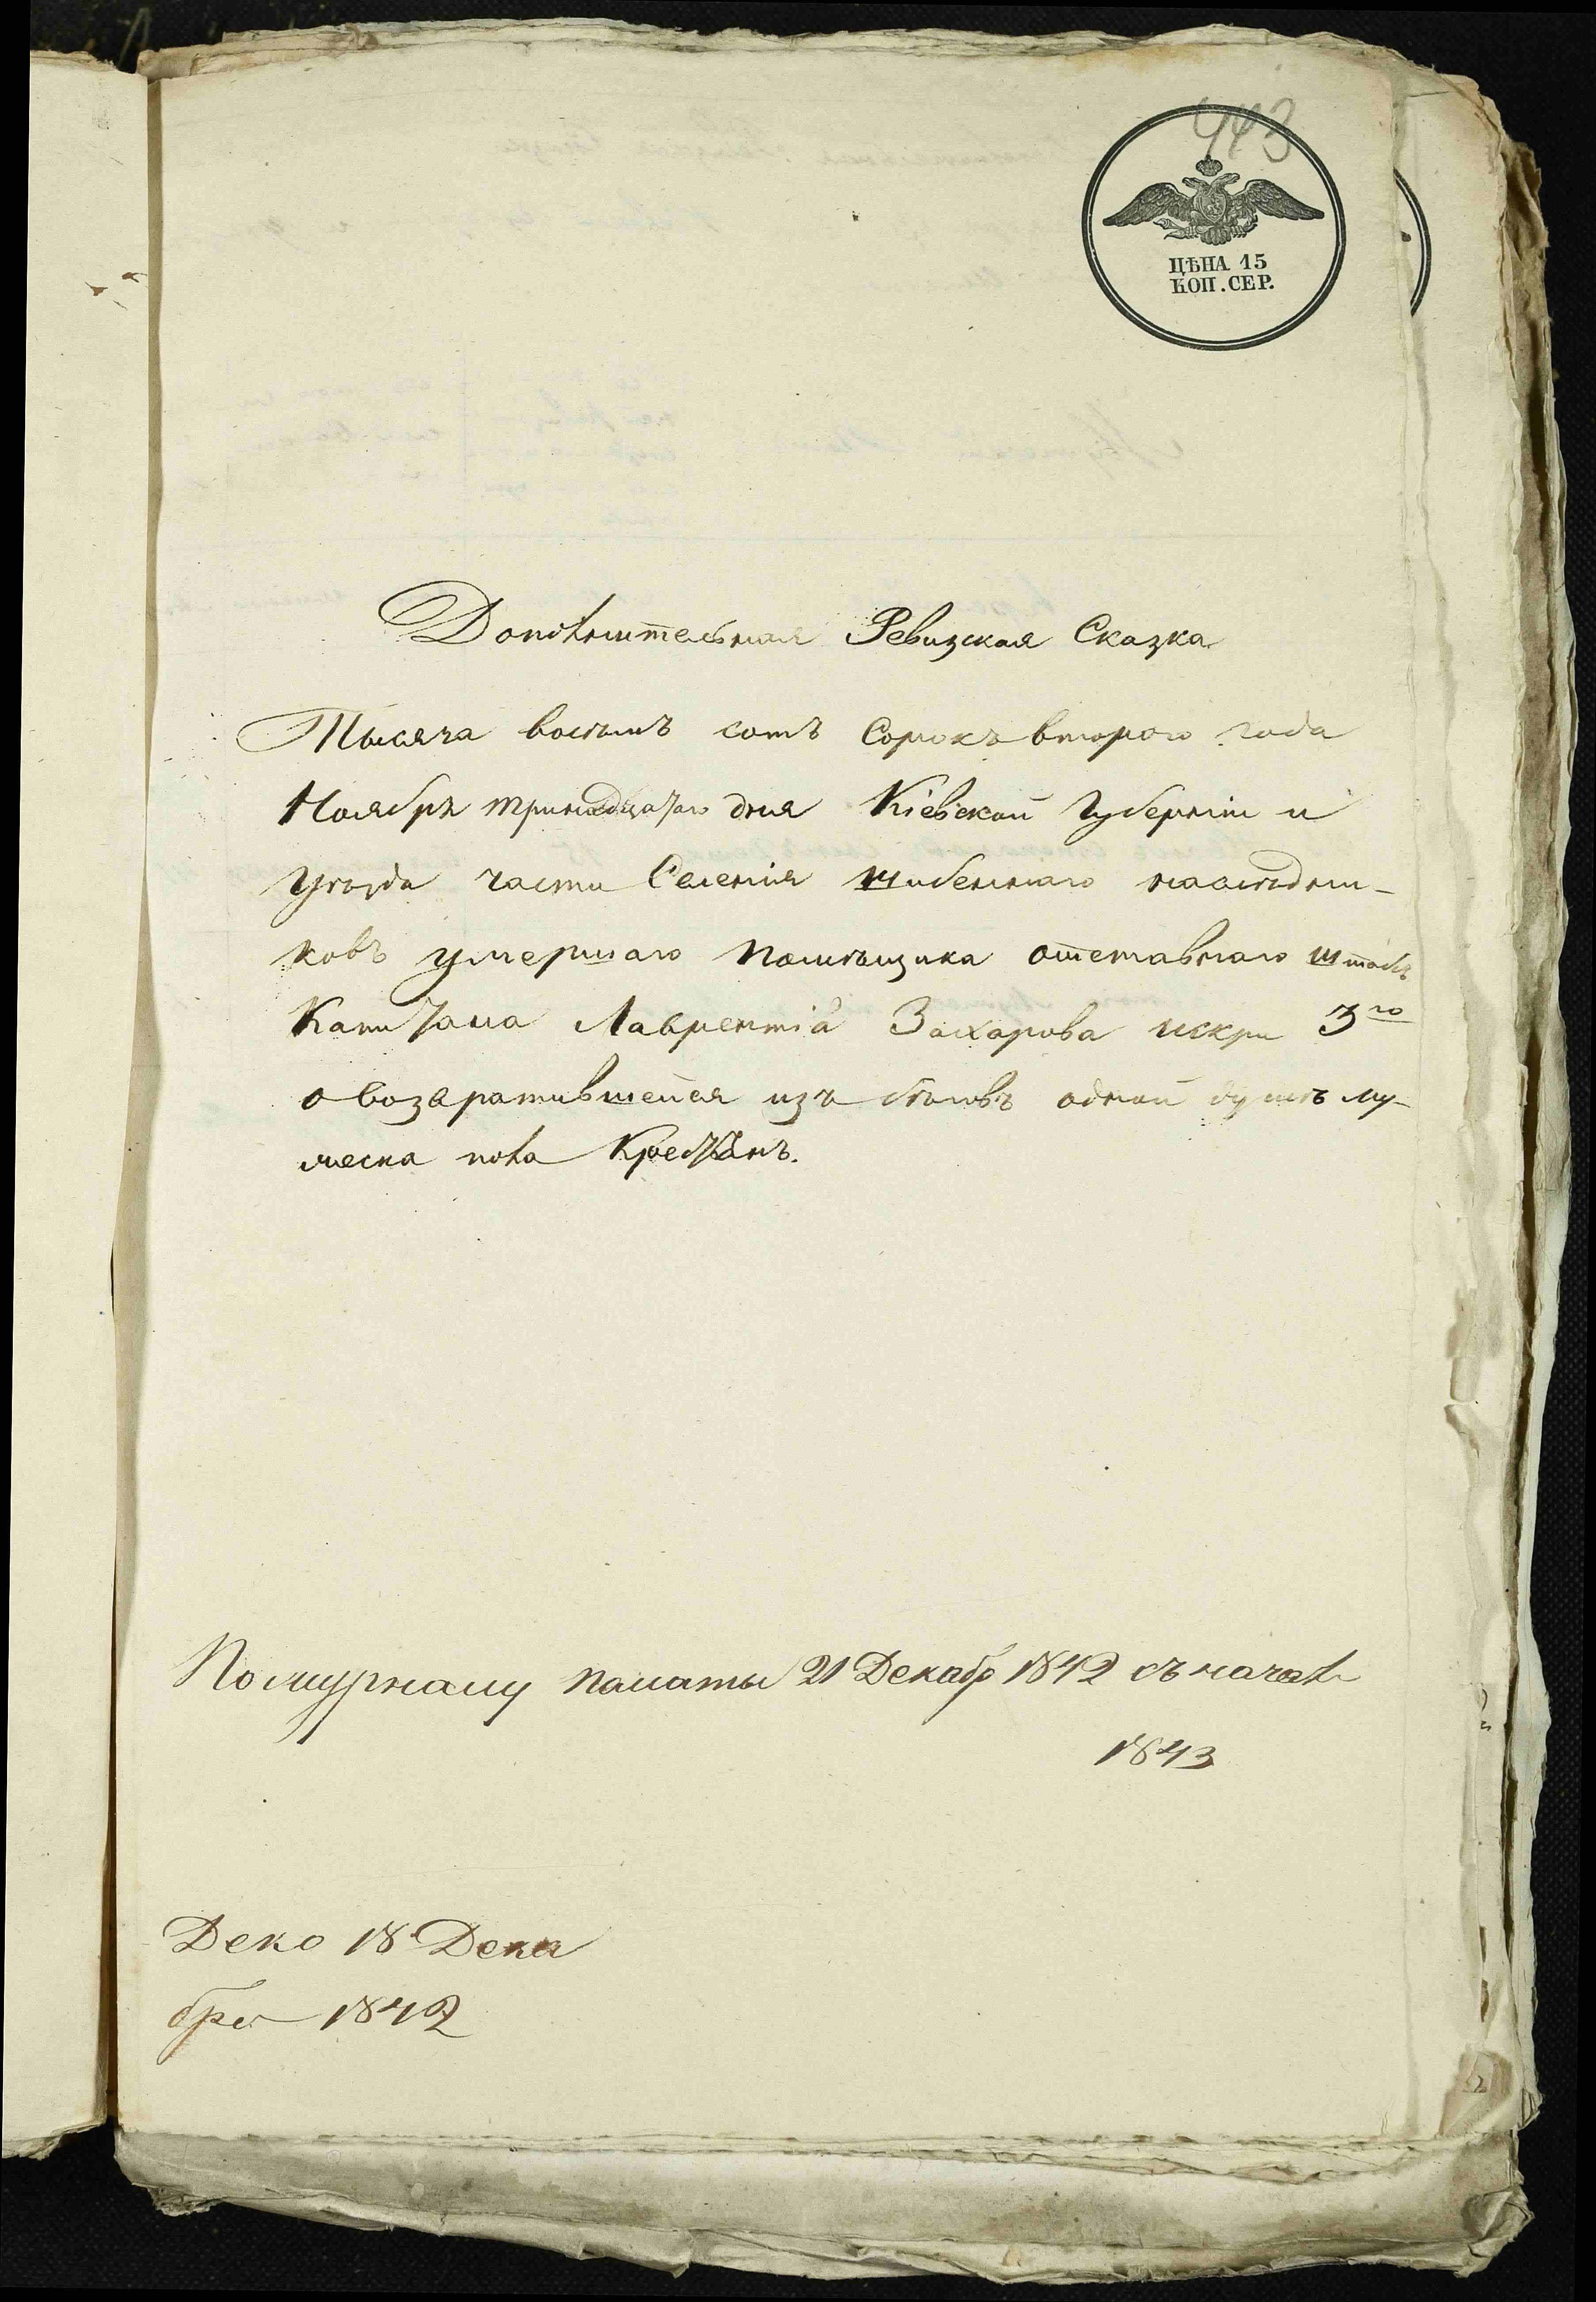 443
ЦѢНА 15
КОП. СЕР.
Дополнительная Ревизская Сказка
Тысяча восемъ сотъ Сорокъ втораго года
Ноября тринадцатаго дня Кіевской Губерніи и
Уѣзда части Селенія Шибеннаго наслѣдни-
ковъ умершаго помѣщика отставнаго штабъ
Капитана Лаврентія Захарова Искри 3го
о возвратившейся изъ бѣговъ одной душѣ му-
жеска пола Крестьянъ.
По журналу палаты 21 Декабр 1842 съ начал
1843
Декабря 1842